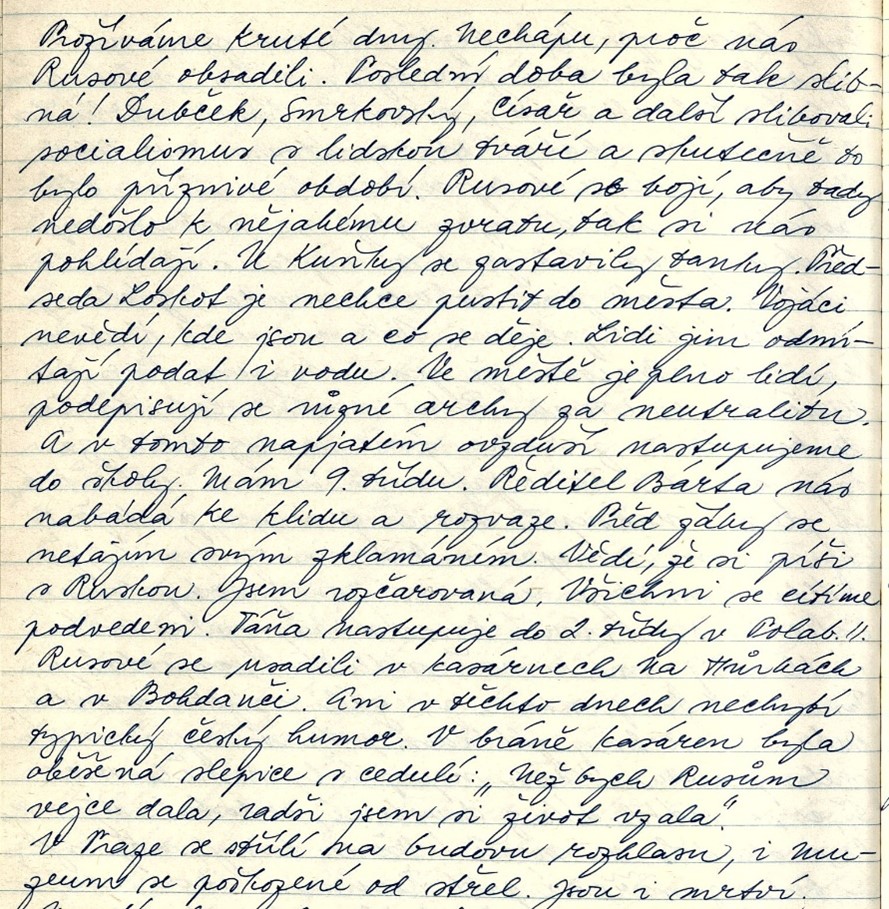 Prožíváme kruté dny. Nechápu, proč nás
Rusové obsadili. Poslední doba byla tak slib-
ná! Dubček, Smrkovský, Císař a další slibovali
socialismus s lidskou tváří a skutečně to
bylo příznivé období. Rusové se bojí, aby tady
nedošlo k nějakému zvratu, tak si nás
pohlídají. U Kuňky se zastavily tanky. Před-
seda Loskot je nechce pustit do města. Vojáci
nevědí, kde jsou a co se děje. Lidi jim odmí-
tají podat i vodu. Ve městě je plno lidí,
podepisují se různé archy za neutralitu.
A v tomto napjatém ovzduší nastupujeme
do školy. Mám 9. třídu. Ředitel Bárta nás
nabádá ke klidu a rozvaze. Před žáky se
netajím svým zklamáním. Vědí, že si píši
s Ruskou. Jsem rozčarovaná. Všichni se cítíme
podvedeni. Táňa nastupuje do 2. třídy v Polab. II.
Rusové se usadili v kasárnech na Hůrkách
a v Bohdanči. Ani v těchto dnech nechybí
typický český humor. V bráně kasáren byla
oběšená slepice s cedulí: „Než bych Rusům
vejce dala, radši jsem si život vzala".
V Praze se střílí na budovu rozhlasu, i mu-
zeum se poškozené od střel. Jsou i mrtví.